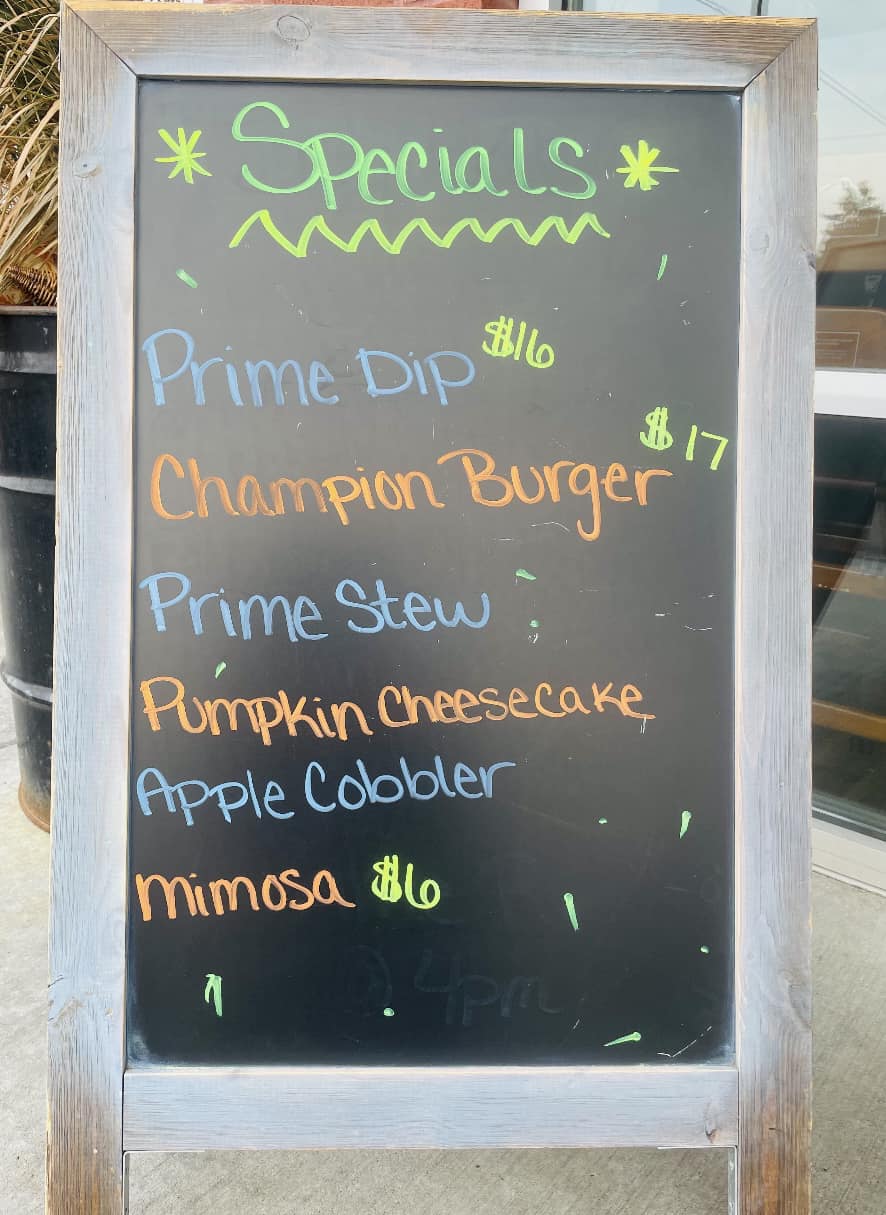 * Specials *
Prime Dip $16
Champion Burger $17
Prime Stew
Pumpkin Cheesecake
Apple Cobbler
mimosa $6
@ 4pm